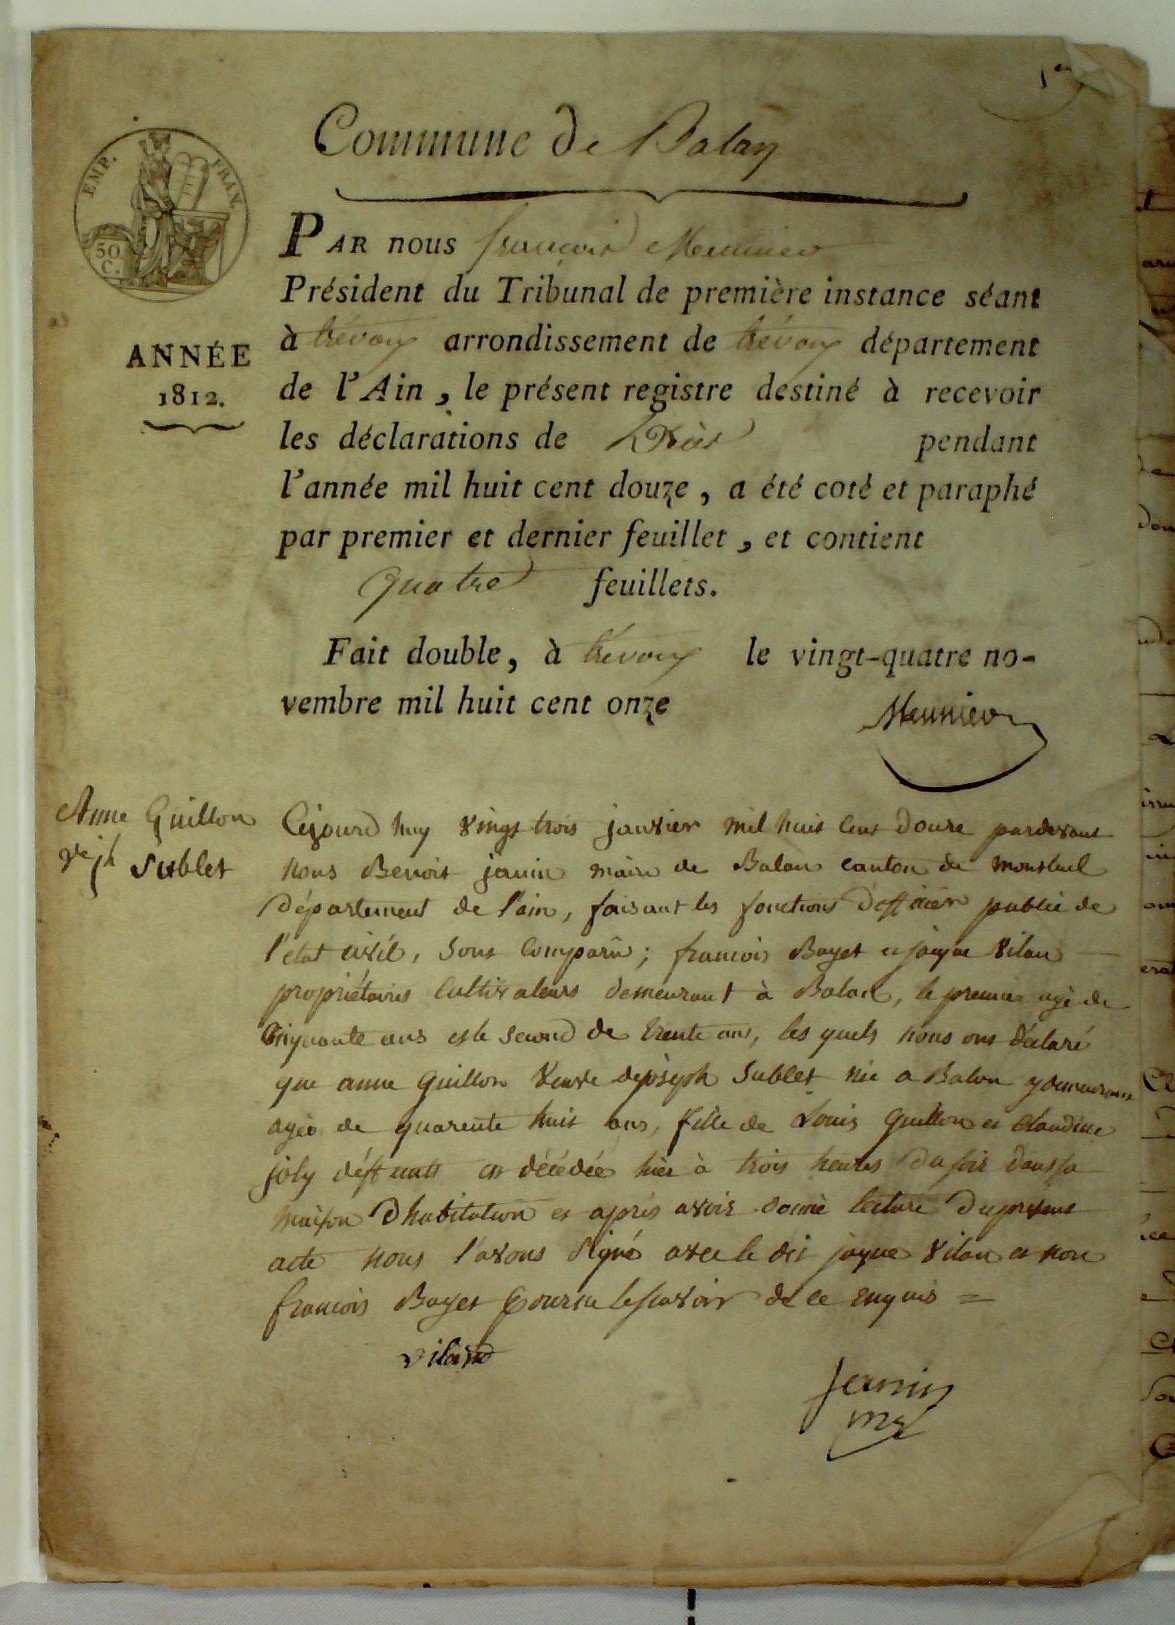 1er
Commune de Balan
EMP. FRAN.
50 C.
PAR nous françois Meunier
Président du Tribunal de première instance séant
ANNÉE
1812.
à trévoux arrondissement de trévoux département
de l'Ain, le présent registre destiné à recevoir
les déclarations de Décès pendant
l'année mil huit cent douze, a été coté et paraphé
par premier et dernier feuillet, et contient
quatre feuillets.
Fait double, à trévoux le vingt-quatre no-
vembre mil huit cent onze
Meunier
Anne Guillon
Ve jh Sublet
Cejourd huy vingt trois janvier mil huit cent douze pardevant
nous Benoit janin maire de Balan canton de montluel
Département de l'ain, faisant les fonctions d'officier public de
l'état civil, sont comparû; francois Bayet et jaque vilan
propriétaires Cultivateurs demeurant à Balan, le premier agé de
Cinquante ans et le second de trente ans, les quels nous ont déclaré
que anne guillon veuve de joseph Sublet née a Balan y demeurant
agée de quarente huit ans, fille de Louis guillon et Claudine
joly déffunts est décédée hièr à trois heures du soir dans sa
maison D'habitation et aprés avoir donné lecture du présent
acte nous l'avons signé avec le dit jaque vilan et non
francois Bayet pour ne le savoir de ce enquis =
viland
Janin
me